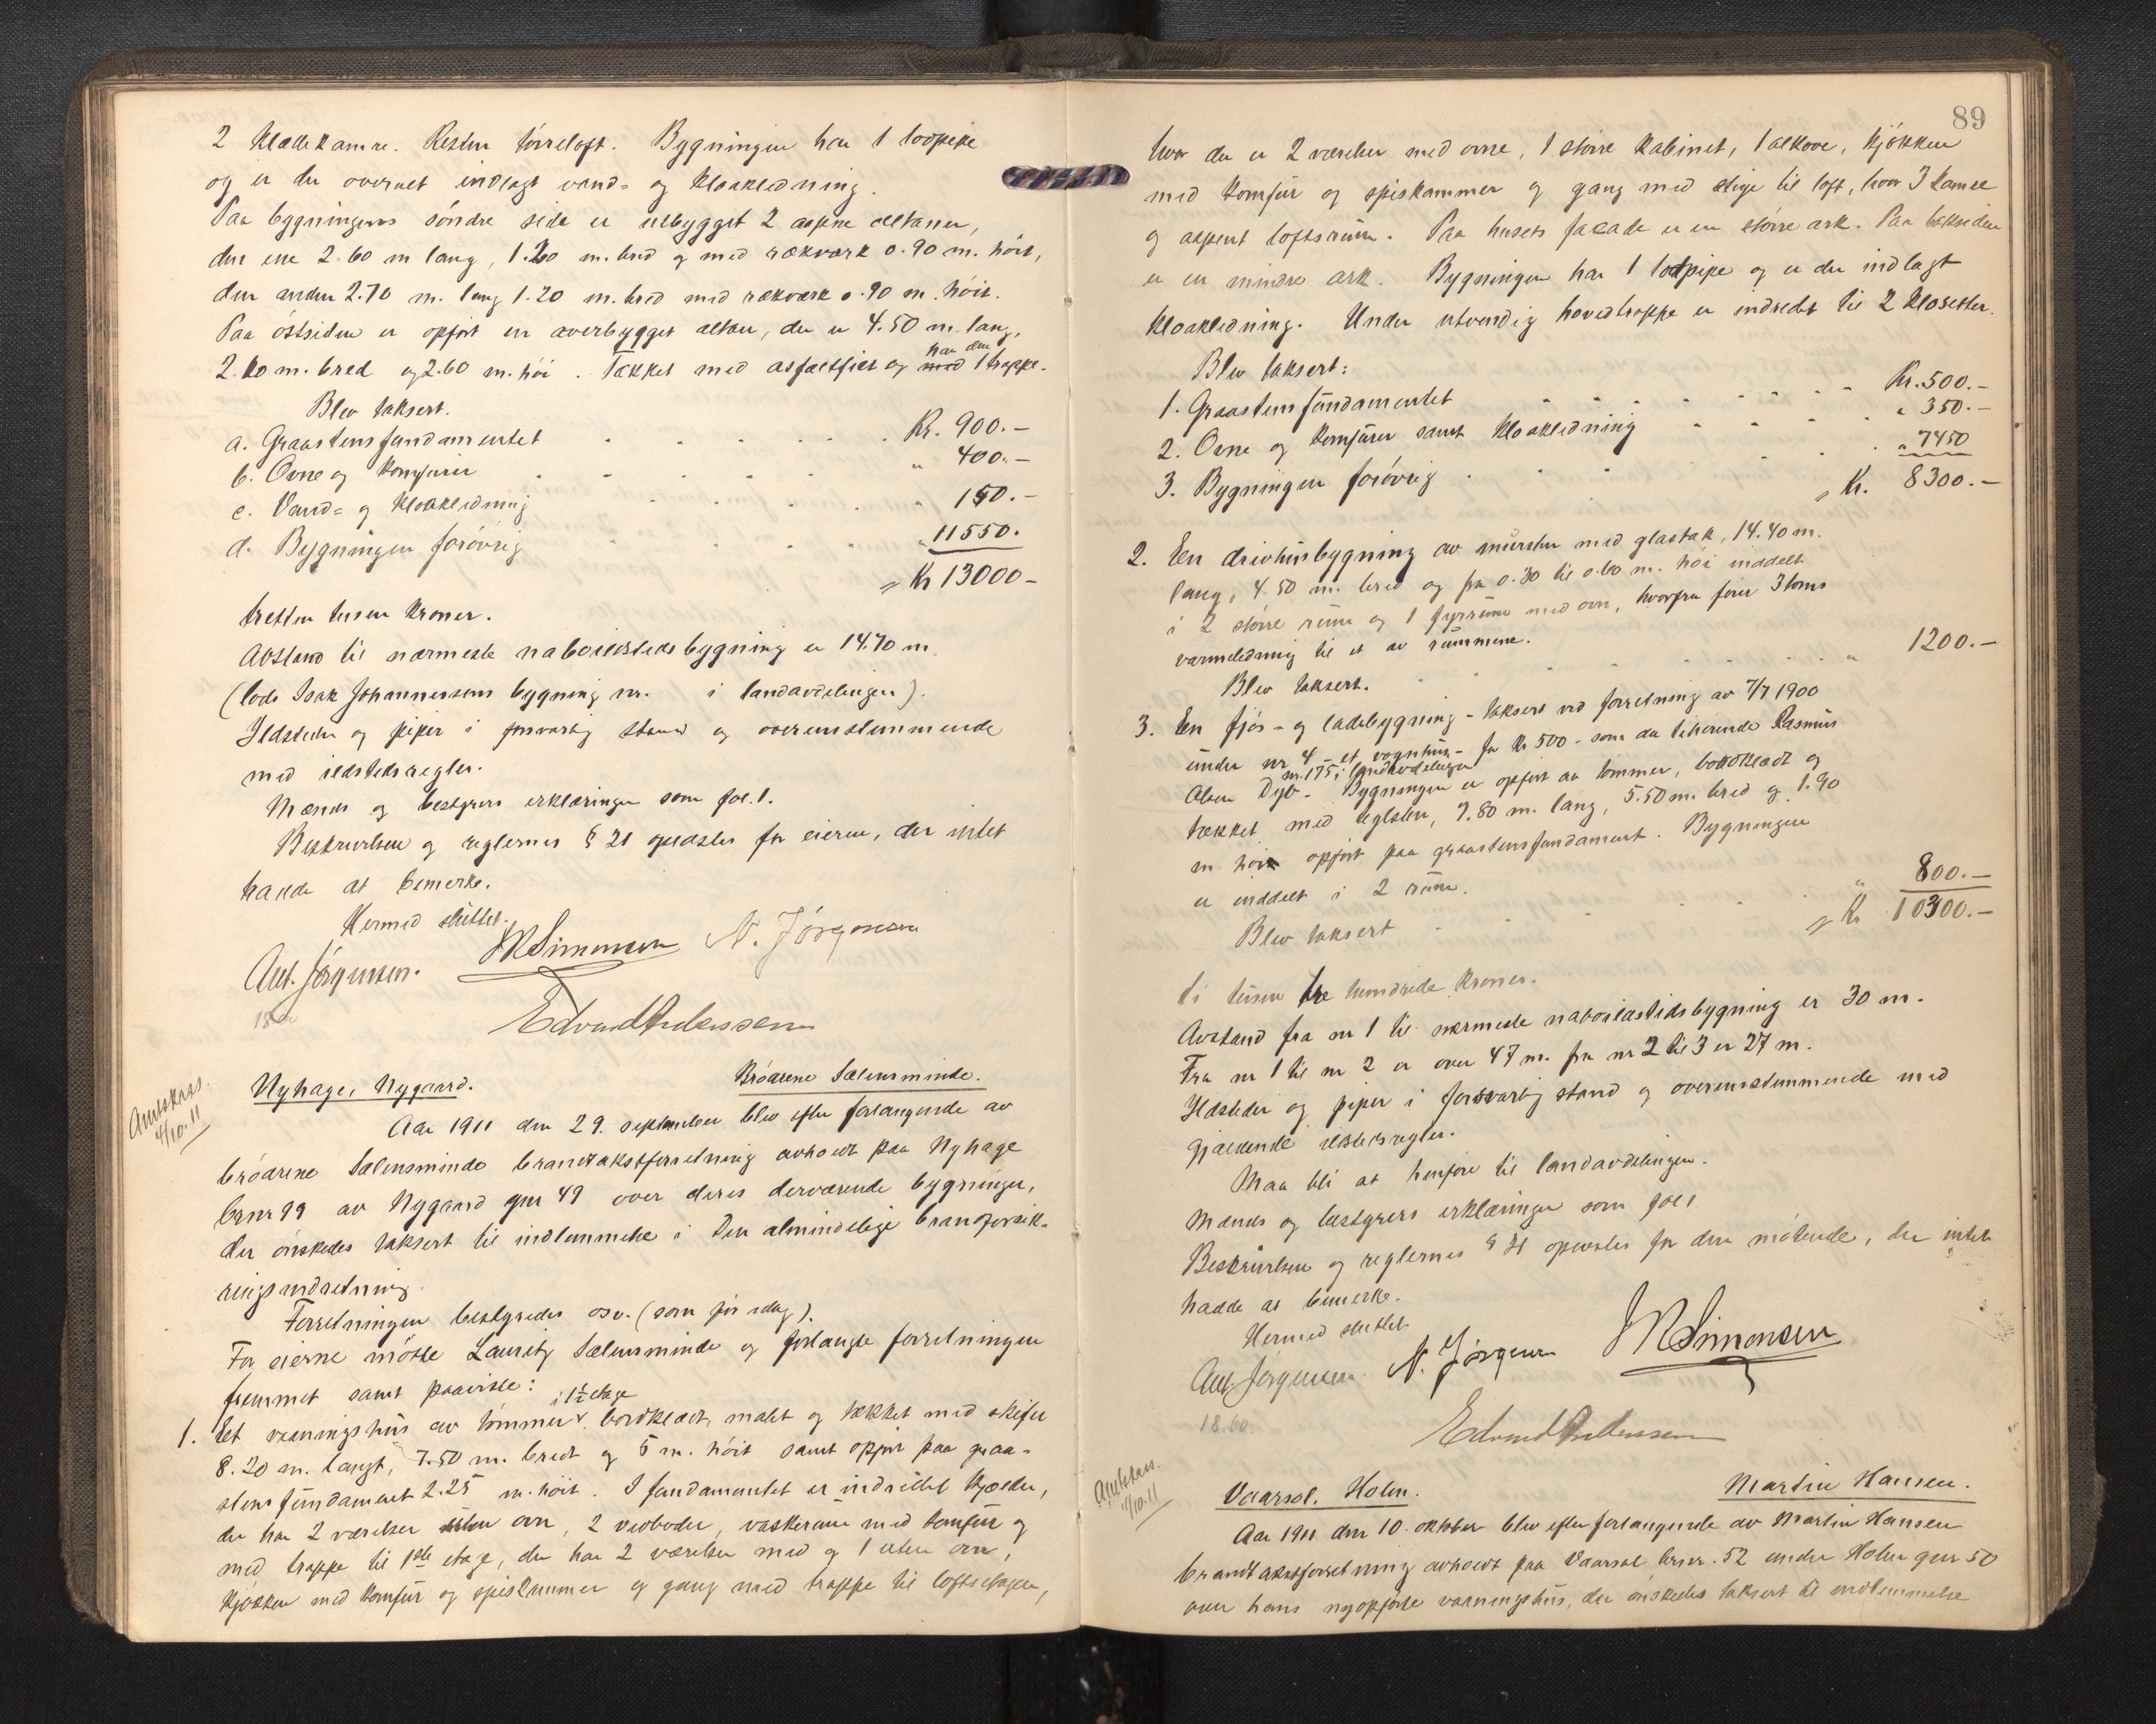 2 klædekamre. Resten tørreloft. Bygningen har 1 lodpipe
og er der overalt indlagt vand- og kloakledning.
Paa bygningens søndre side er utbygget 2 aapne altaner,
den ene 2.60 m lang, 1.20 m. bred og med rækværk 0.90 m. høit,
den anden 2.70 m. lang 1.20 m. bred med rækværk 0.90 m. høit.
Paa østsiden er opført en overbygget altan, der er 4.50 m. lang,
har den
2.10 m. bred og 2.60 m. høi. Tækket med asfaltfilt og med 1 trappe.
Blev taksert.
a. Graastensfundamentet Kr. 900.-
b. Ovne og komfurer " 400.-
c. Vand- og kloakledning " 150.-
d. Bygningen forøvrig " 11550.
= Kr 13000-
tretten tusen kroner.
Avstand til nærmeste naboildstedsbygning er 14.70 m.
(lods Isak Johannessens bygning nr. i landavdelingen).
Ildsteder og piper i forsvarlig stand og overensstemmende
med ildstedsregler.
Mænds og bestyrers erklæringer som fol. 1.
Beskrivelsen og reglernes § 21 oplæstes for eieren, der intet
hadde at bemerke.
Hermed sluttet.
Ant. Jørgensen. JRSimonsen N. Jørgensen
18
Edvard Andersen
Amtskass.
4/10.11
Nyhage, Nygaard. Brødrene Sælensminde.
Aar 1911 den 29. september blev efter forlangende av
brødrene Sælensminde brandtakstforretning avholdt paa Nyhage
brnr 99 av Nygaard gnr 49 over deres derværende bygninger,
der ønskedes taksert til indlemmelse i Den almindelige brandforsik-
ringsindretning.
Forretningen bestyredes osv. (som før idag).
For eierne møtte Lauritz Sælensminde og forlangte forretningen
fremmet samt paaviste:
i 1½ etage
1. Et vaaningshus av tømmer v bordklædt, malet og tækket med skifer
8.20 m. langt, 7.50 m. bredt og 5 m. høit samt opført paa graa-
stensfundament 2.25 m. høit. I fundamentet er indrettet kjælder,
der har 2 værelser uten ovn, 2 vedboder, vaskerum med komfur og
med trappe til 1ste etage, der har 2 værelser med og 1 uten ovn,
kjøkken med komfur og spiskammer og gang med trappe til loftsetagen,
89
hvor der er 2 værelser med ovne, 1 større kabinet, 1 alkove, kjøkken
med komfur og spiskammer og gang med stige til loft, hvor 3 kamre
og aapent loftsrum. Paa husets facade er en større ark. Paa baksiden
er en mindre ark. Bygningen har 1 lodpipe og er der indlagt
kloakledning. Under utvendig hovedtrappe er indredet til 2 klosetter.
Blev taksert:
1. Graastensfundamentet Kr. 500.-
2. Ovne og komfurer samt kloakledning " 350.-
3. Bygningen forøvrig " 7450
= Kr. 8300.-
2. En drivhusbygning av mursten med glastak, 14.40 m.
lang, 4.50 m. bred og fra 0.30 til 0.60 m. høi inddelt
i 2 større rum og 1 fyrrum med ovn, hvorfra fører 3 toms
varmeledning til et av rummene.
Blev taksert. " 1200.-
3. En fjøs- og ladebygning - taksert ved forretning av 7/7 1900
under nr 4 - et vognhus - for kr 500 - som da tilhørende Rasmus
nr. 175 i landavdelingen
Olsen Dyb - Bygningen er opført av tømmer, bordklædt og
tækket med teglsten, 7.80 m. lang, 5.50 m. bred og 1.90
m. høi opført paa graastensfundament. Bygningen
er inddelt i 2 rum.
Blev taksert " 800.-
= Kr 10300.-
ti tusen tre hundrede kroner.
Avstand fra nr 1 til nærmeste naboildstedsbygning er 30 m.
Fra nr 1 til nr 2 er over 47 m. fra nr 2 til 3 er 27 m.
Ildsteder og piper i forsvarlig stand og overensstemmende med
gjældende ildstedsregler.
Maa bli at henføre til landavdelingen.
Mænds og bestyrers erklæringer som fol 1.
Beskrivelsen og reglernes § 21 oplæstes for den møtende, der intet
hadde at bemerke.
Hermed sluttet.
Ant Jørgensen. N. Jørgensen JRSimonsen
18.60.
Edvard Andersen
Amtskass.
4/10.11
Vaarsol, Holen. Martin Hansen.
Aar 1911 den 10. oktober blev efter forlangende av Martin Hansen
brandtakstforretning avholdt paa Vaarsol brnr. 52 under Holen gnr 50
over hans nyopførte vaaningshus, der ønskedes taksert til indlemmelse